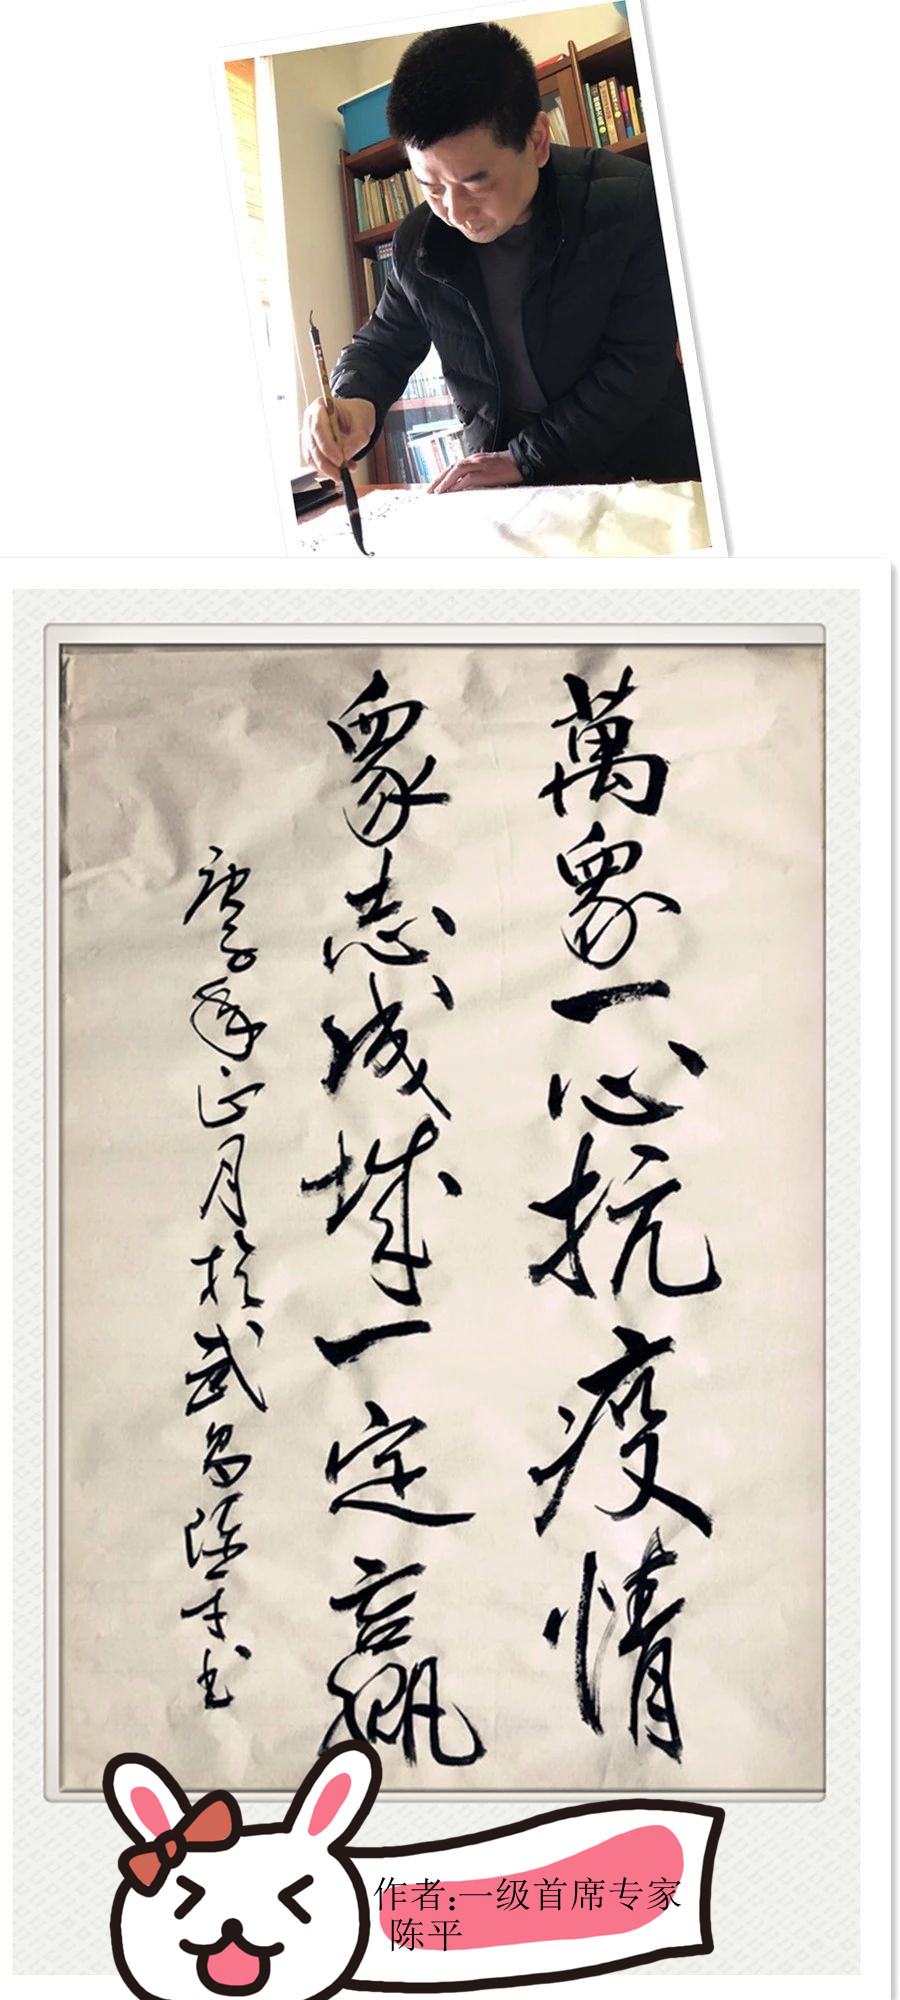 萬眾一心抗疫情
眾志成城一定贏
庚子年正月於武昌陈平书
作者:一级首席专家
陈平